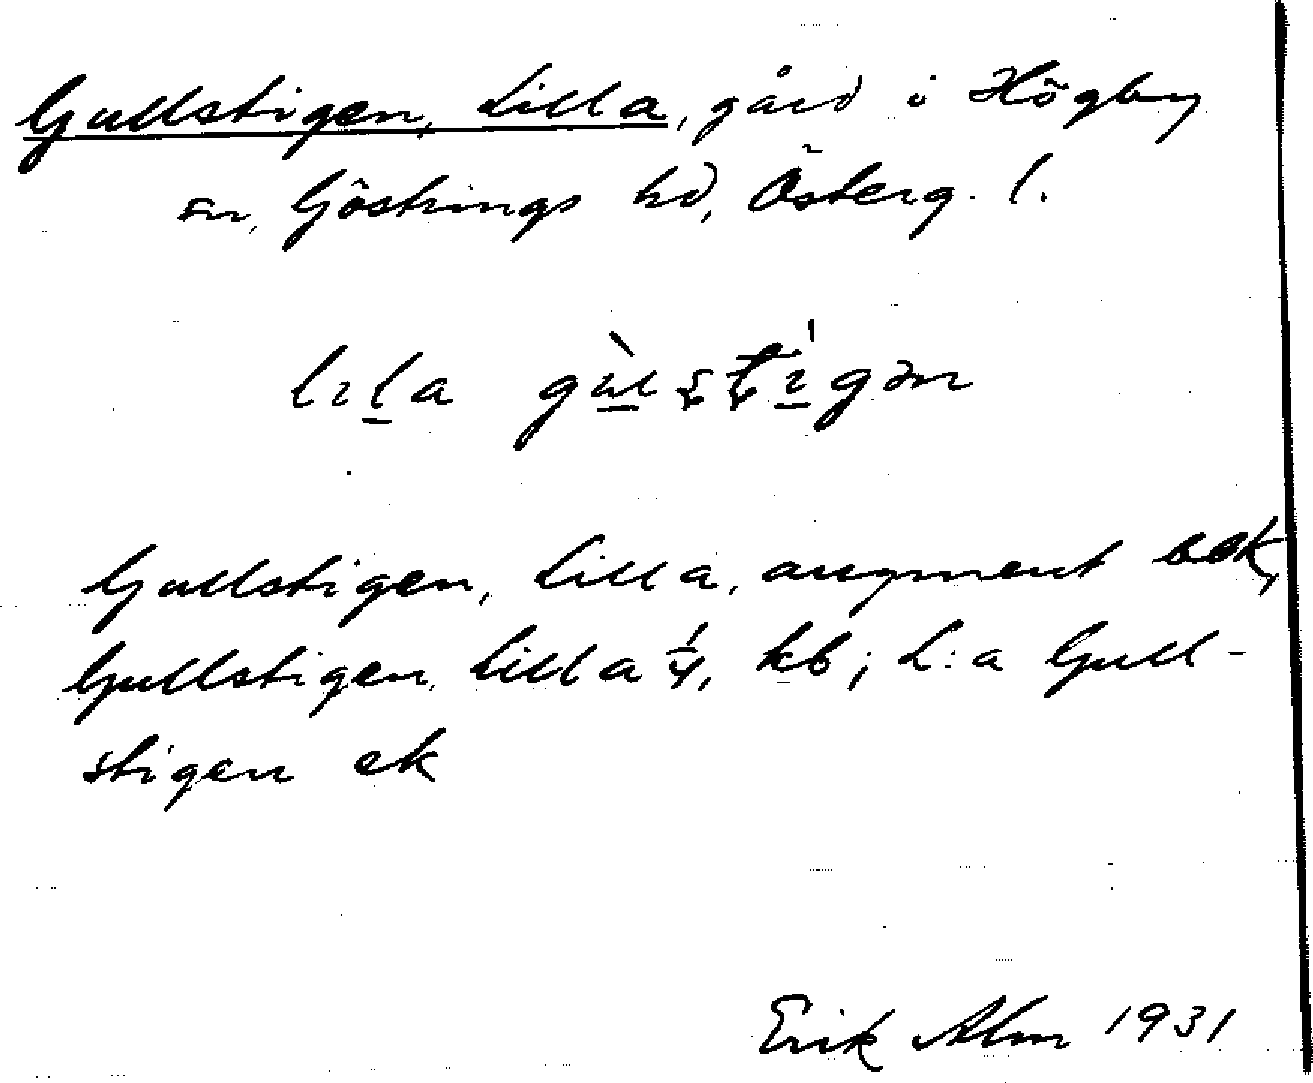 Gullstigen, Lilla, gård i Högby
sn, Göstrings hd, Österg. l.
lıla gùlstı̀gən
Gullstigen, Lilla, augment
Gullstigen, Lilla 1/4, kb; L:a Gull-
stigen ek
Erik Alm 1931